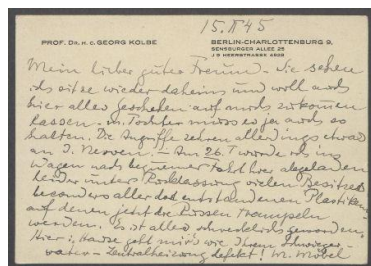 15. II 45
PROF. DR. H. C. GEORG KOLBE
BERLIN-CHARLOTTENBURG 9.
SENSBURGER ALLEE 25
J 9 HEERSTRASSE
Mein lieber guter Freund - Sie sehen
ich sitze wieder daheim und will auch
hier alles geschehen auf mich zukommen
lassen. M. Tochter muss es ja auch so
halten. Die Angriffe zehren allerdings etwas
an d. Nerven. - Am 26 I wurde ich im
Wagen nach Fahrt hier abgeladen
leider unter vielen Besitzes
besonders aller dort entstandenen Plastiken
auf denen jetzt die Russen trampeln
werden. Es ist alles schrecklich geworden.
Hier i. Hause geht mir's wie Ihrem Schwieger-
vater - Zentralheizung defekt!